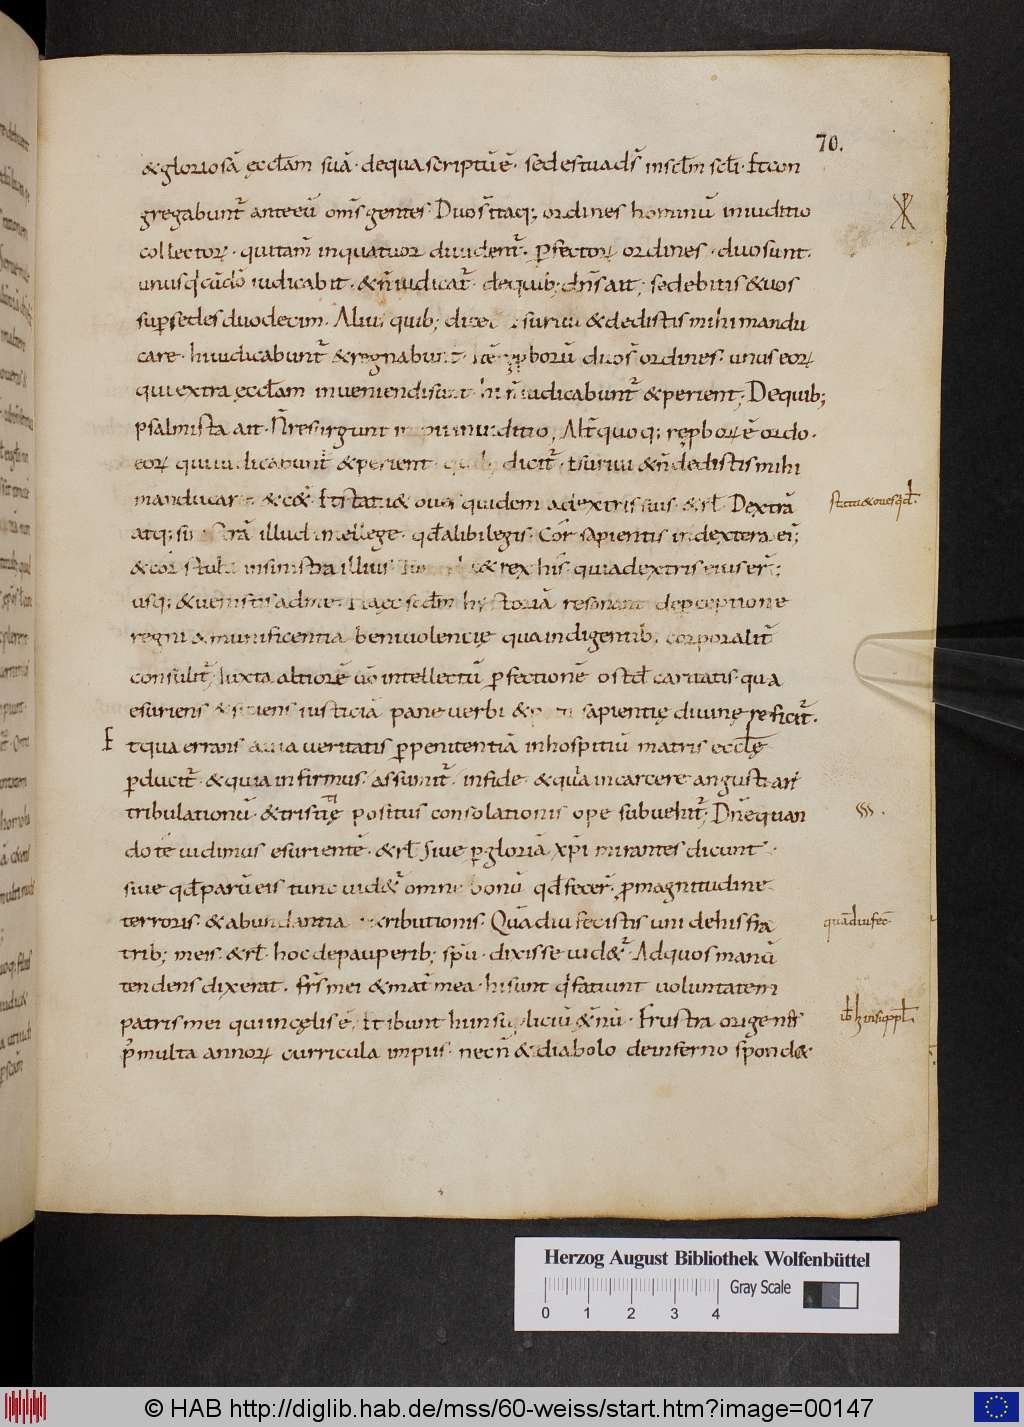 70.
& gloriosā ęcclam suā · de qua scriptū ē · sed es tu ad s̄ in sclm scli · Et con
gregabunt̄ ante eū om̄s gentes · Duos itaq; ordines hominū in iuditio
collectorꝝ · qui tam̄ in quatuor diuident̄ · ꝑfectorꝝ ordines · duo sunt ·
unus q̄ cū dn̄o iudicabit · & n̄ iudicat̄ · de quib; dn̄s ait; sedebitis & uos
suꝑ sedes duodecim · Alius quib; dicet esuriui & dedistis mihi mandu
care · hi iudicabunt̄ & regnabunt · reꝓborū duo s̄ ordines · unus eorꝝ
qui extra ęcclam inueniendi sunt hi n̄ iudicabunt̄ & perient; De quib;
psalmista ait · N̄ resurgunt impii in iuditio; Alt̄ quoq; reꝓborꝝ ē ordo ·
eorꝝ qui iudicabunt̄ & perient · quib; dicit̄ · Esuriui & n̄ dedistis mihi
manducare · & c&̄ · Et statu& oues quidem a dextris suis · & rl̄ · Dextrā
atq; sinistrā illud intellege · qd̄ alibi legis · Cor sapientis in dextera ei;
& cor stulti in sinistra illius · & rex his qui a dextris eius er̄;
usq; & uenistis ad me · Haec scdm hystoriā resonant de ꝑceptione
regni & munificentia beniuolencię qua indigentib; corporalit̄
consulit̄; Iuxta altiorē u̅o intellectū ꝑfectionē ostd̄ caritatis qua
esuriens & sitiens iusticiā pane uerbi & potu sapientię diuinę reficit̄ ·
Et qua errans a uia ueritatis ꝑ penitentiā in hospitiū matris ecclę
ꝑducit̄ · & quia infirmus · assumit̄ · in fide · & quia in carcere angustiarꝝ
tribulationū · & tristitię positus consolationis ope subuehit̄; Dn̄e quan
do te uidimus esurientē · & rl̄ Siue ꝑ gloriā xp̄i mirantes dicunt ·
siue qd̄ parū eis tunc uid&̄ omne bonū qd̄ fecer̄ · ꝓ magnitudine
terroris · & abundantia retributionis · Quādiu fecistis uni de his fra
trib; meis · & rl̄ · hoc de pauperib; spū · dixisse uid&̄ · Ad quos manū
tendens dixerat · fr̄s mei & mat̄ mea · hi sunt q̄ faciunt uoluntatem
patris mei qui in cęlis ē · Et ibunt hi in supliciū & n̄ū · Frustra origenes
p̄ multa annorꝝ curricula impiis · necn̄ & diabolo de inferno spond&
statu& oues qd̄
quādiu fec̄
Herzog August Bibliothek Wolfenbüttel
Gray Scale
0 1 2 3 4
© HAB http://diglib.hab.de/mss/60-weiss/start.htm?image=00147